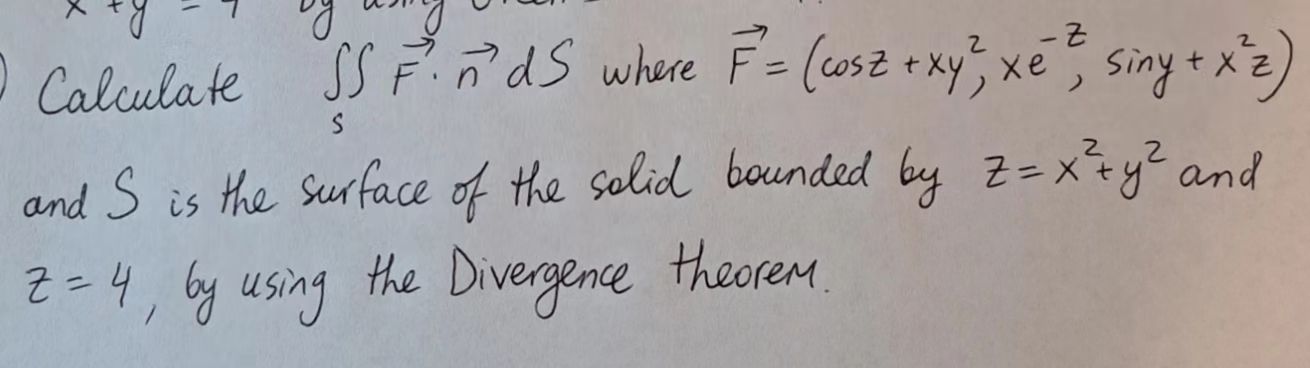 x + y = 4 by using
) Calculate ∬_S F⃗ · n⃗ dS where F⃗ = (cosz + xy², xe^{-z}, siny + x²z)
and S is the surface of the solid bounded by z = x² + y² and
z = 4, by using the Divergence theorem.